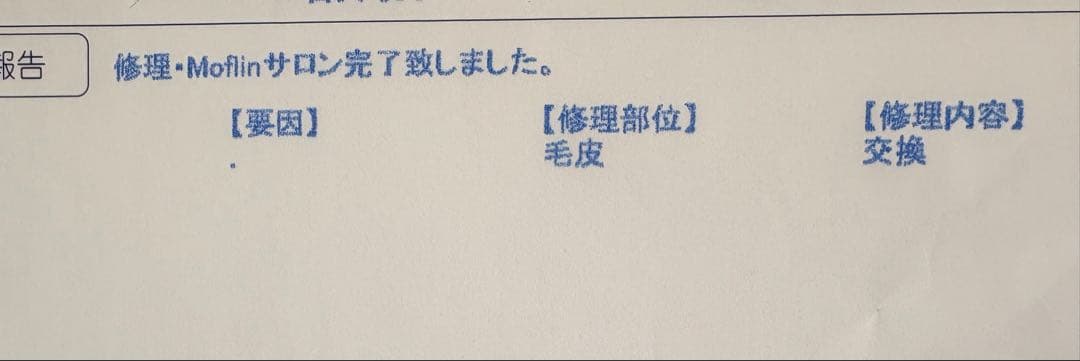 報告
修理・Moflinサロン完了致しました。
【要因】 【修理部位】 【修理内容】
. 毛皮 交換